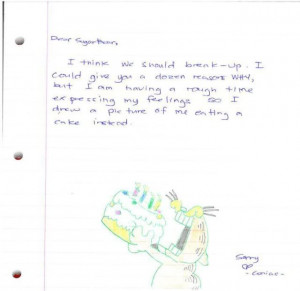 Dear Sugarbear,
I think we should break-up. I
could give you a dozen reasons WHY,
but I am having a rough time
expressing my feelings so I
drew a picture of me eating a
cake instead.
Sorry